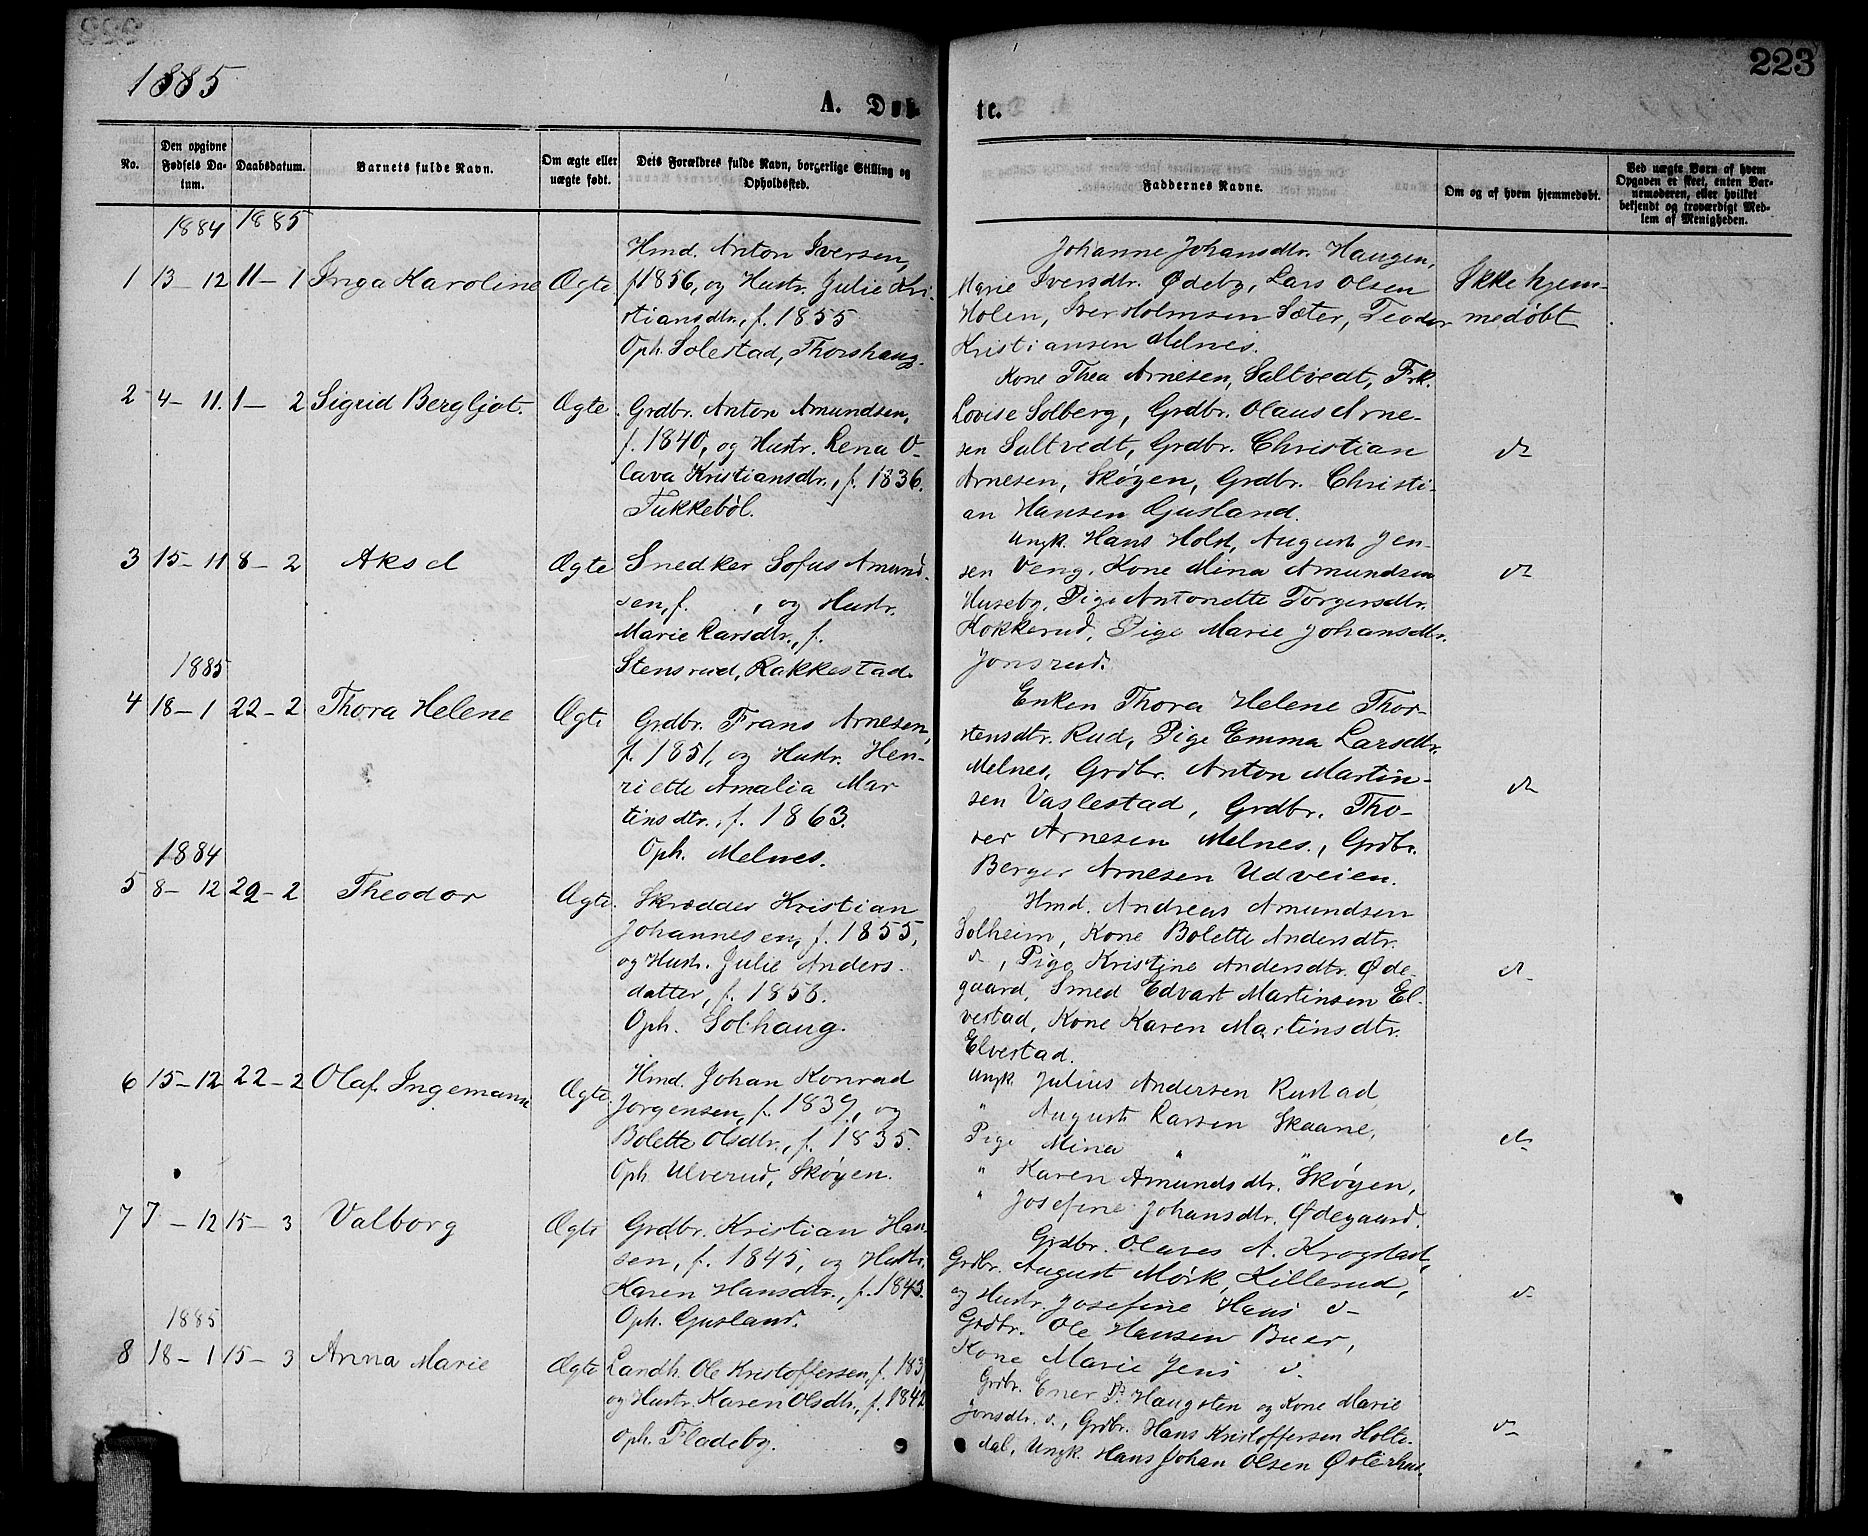 223
1885
A. Døb
te.
No.
Den opgivne Fødsels Da-
tum.
Daabsdatum.
Barnets fulde Navn.
Om ægte eller
uægte født.
Dets Forældres fulde Navn, borgerlige Stilling og
Opholdssted.
Faddernes Navne.
Om og af hvem hjemmedøbt.
Ved uægte Børn af hvem
Opgaven er skeet, enten Bar-
nemoderen, eller hvilket
bekjendt og troværdigt Med-
lem af Menigheden.
1884 1885
1 13-12 11-1 Inga Karoline Ægte
Hmd. Anton Iversen,
f. 1856, og Hustr. Julie Kri-
stiansdtr., f. 1855
Oph. Solestad, Thorshaug.
Johanne Johansdtr. Haugen,
Marie Iversdtr. Ødeby, Lars Olsen
Holen, Iver Holmsen Sæter, Teodor
Kristiansen Melnes.
Ikke hjem-
medøbt
2 4-11. 1-2 Sigrid Bergljot. Ægte
Grdbr. Anton Amundsen,
f. 1840, og Hustr. Lena O-
lava Kristiansdtr., f. 1836.
Tukkebøl.
Kone Thea Arnesen, Saltvedt, Frk.
Lovise Solberg, Grdbr. Olaus Arne-
sen Saltvedt, Grdbr. Christian
Arnesen, Skøyen, Grdbr. Christi-
an Hansen Gusland.
d-
3 15-11 8-2 Aksel Ægte
Snedker Sofus Amund-
sen, f. , og Hustr.
Marie Larsdtr., f.
Stensrud, Rakkestad.
Ungk. Hans Holst, August Jen-
sen Veng, Kone Mina Amundsen
Huseby, Pige Antonette Torgersdtr.
Kokkerud, Pige Marie Johansdtr.
Jonsrud.
d-
1885
4 18-1 22-2 Thora Helene Ægte
Grdbr. Frans Arnesen,
f. 1851, og Hustr. Hen-
riette Amalia Mar
tinsdtr., f. 1863.
Oph. Melnes.
Enken Thora Helene Thor-
stensdtr. Rud, Pige Emma Larsdtr.
Melnes, Grdbr. Anton Martin-
sen Vaslestad, Grdbr. Tho-
rer Arnesen Melnes., Grdbr.
Berger Arnesen Udveien.
d-
1884
5 8-12 22-2 Theodor Ægte.
Skrædder Kristian
Johannesen, f. 1855,
og Hustr. Julie Anders-
datter, f. 1856.
Oph. Solhaug.
Hmd. Andreas Amundsen
Solheim, Kone Bolette Andersdtr.
d-, Pige Kristine Andersdtr. Øde-
gaard, Smed Edvart Martinsen El-
vestad, Kone Karen Martinsdtr.
Elvestad.
d-
6 15-12 22-2 Olaf Ingemann Ægte
Hmd. Johan Konrad
Jørgensen, f. 1839, og
Bolette Olsdtr., f. 1835.
Oph. Ulverud, Skøyen.
Ungk. Julius Andersen Rustad,
" August Larsen Skaane,
Pige Mina " "
" Karen Amundsdtr. Skøyen,
" Josefine Johansdtr. Ødegaard.
d-
7 7-12 15-3 Valborg Ægte
Grdbr. Kristian Han-
sen, f. 1845, og Hustr.
Karen Hansdtr., f. 1843.
Oph. Gusland.
Grdbr. Olaves A. Krogstad,
Grdbr. August Mørk, Killerud,
og Hustr. Josefine Hans d-
Grdbr. Ole Hansen Buer,
Kone Marie Jens d.
d-
1885
8 18-1 15-3 Anna Marie Ægte
Landh. Ole Kristoffersen, f. 183
og Hustr. Karen Olsdtr., f. 1842
Oph. Fladeby.
Grdbr. Ener P. Haugsten og Kone Marie
Jonsdtr. d., Grdbr. Hans Kristoffersen Holte-
dal, Ungk. Hans Johan Olsen
d-